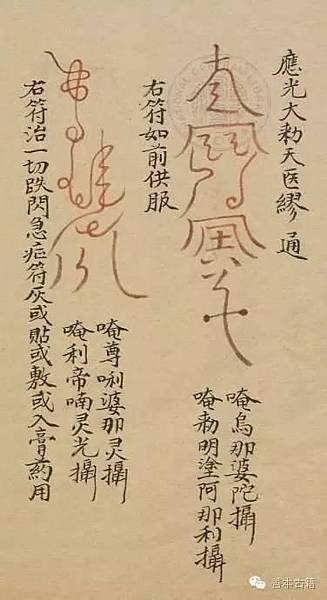 應光大勑天医繆 通
唵烏那婆陀攝
唵勑明塗阿那利攝
右符如前供服
唵尊唎婆那灵攝
唵利帝喃灵光攝
右符治一切跌閃急症符灰或貼或敷或入膏药用
善本古籍